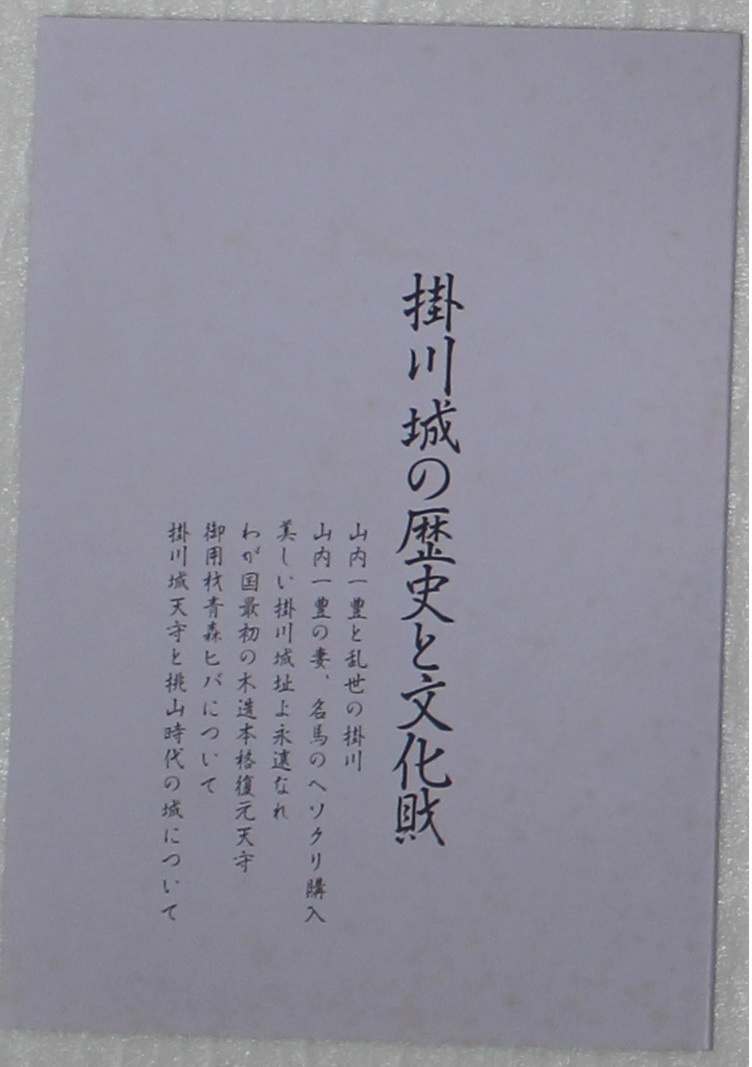 掛川城の歴史と文化財
山内一豊と乱世の掛川
山内一豊の妻、名馬のヘソクリ購入
美しい掛川城址よ永遠なれ
わが国最初の木造本格復元天守
御用材青森ヒバについて
掛川城天守と桃山時代の城について